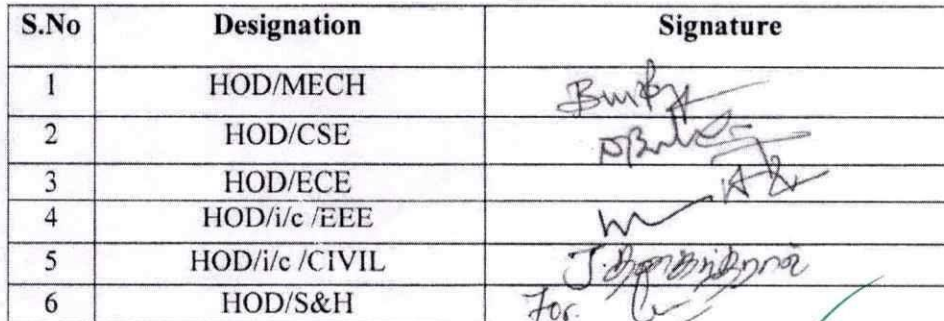 S.No Designation Signature
1 HOD/MECH
2 HOD/CSE
3 HOD/ECE
4 HOD/i/c /EEE
5 HOD/i/c /CIVIL J.
6 HOD/S&H For.